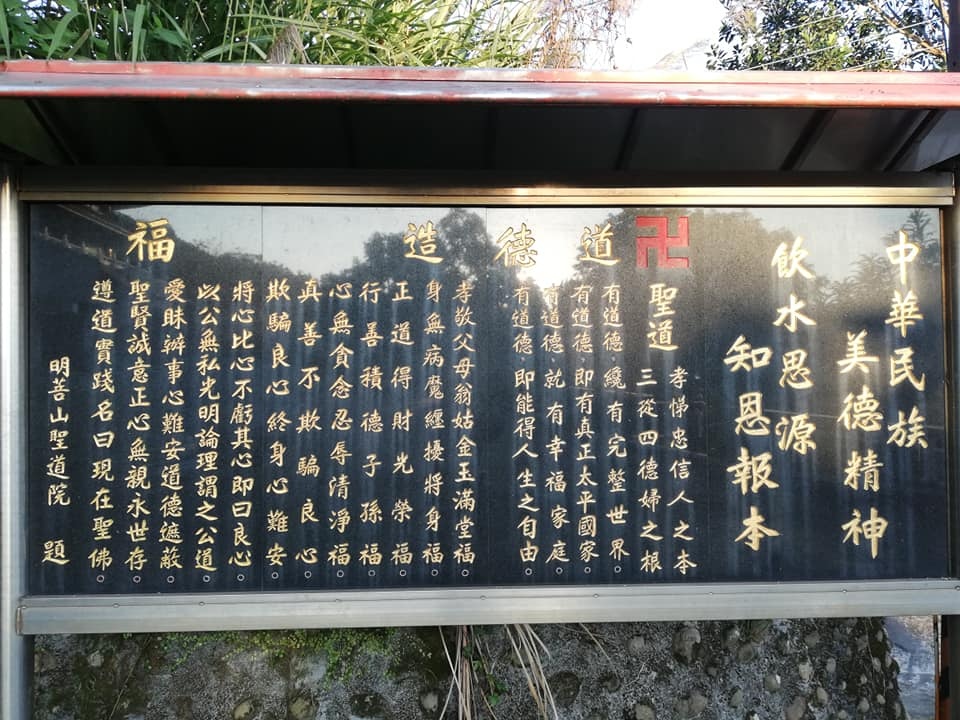 中華民族
美德精神
飲水思源
知恩報本
卍道德造福
聖道
孝悌忠信人之本
三從四德婦之根
有道德、纔有完整世界。
有道德、即有真正太平國家。
有道德、就有幸福家庭。
有道德、即能得人生之自由。
孝敬父母翁姑金玉滿堂福。
身無病魔纏擾將身福。
正道得財光榮福。
行善積德子孫福。
心無貪念忍辱清淨福。
真善不欺騙良心。
欺騙良心終身心難安。
將心比心不虧其心即曰良心。
以公無私光明論理謂之公道。
愛財辦事心難安道德遮蔽。
聖賢誠意正心無親永世存。
遵道實踐名曰現在聖佛。
明善山聖道院 題